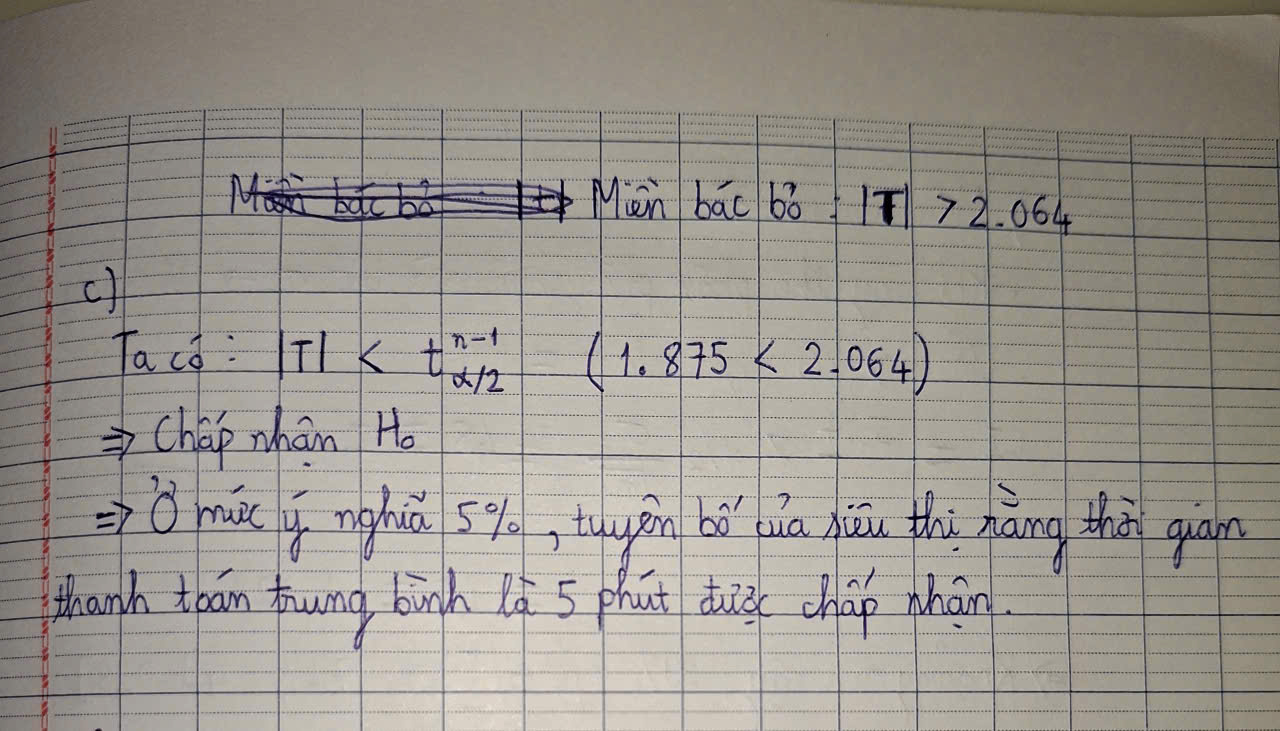 Miền bác bỏ |t| Miền bác bỏ : |T| > 2.064
c)
Ta có : |T| < t n-1 α/2 (1.875 < 2.064)
⇒ Chấp nhận H₀
⇒ Ở mức ý nghĩa 5%, tuyên bố của siêu thị rằng thời gian
thanh toán trung bình là 5 phút được chấp nhận.